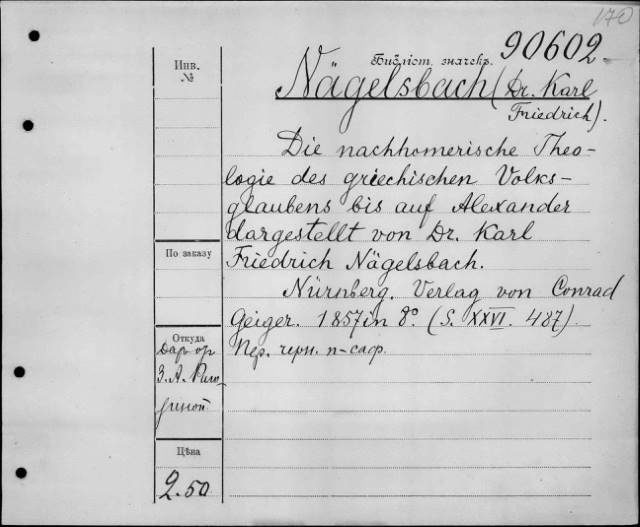 170
Библіот. значекъ. 90602
Инв.
№
Nägelsbach (Dr. Karl
Friedrich).
Die nachhomerische Theo-
logie des griechischen Volks-
glaubens bis auf Alexander
dargestellt von Dr. Karl
Friedrich Nägelsbach.
Nürnberg. Verlag von Conrad
Geiger. 1857 in 8º. (S. XXVI. 487).
Пер. черн. п-саф.
По заказу
Откуда
Дар от
З. А. 
Цѣна
2.50